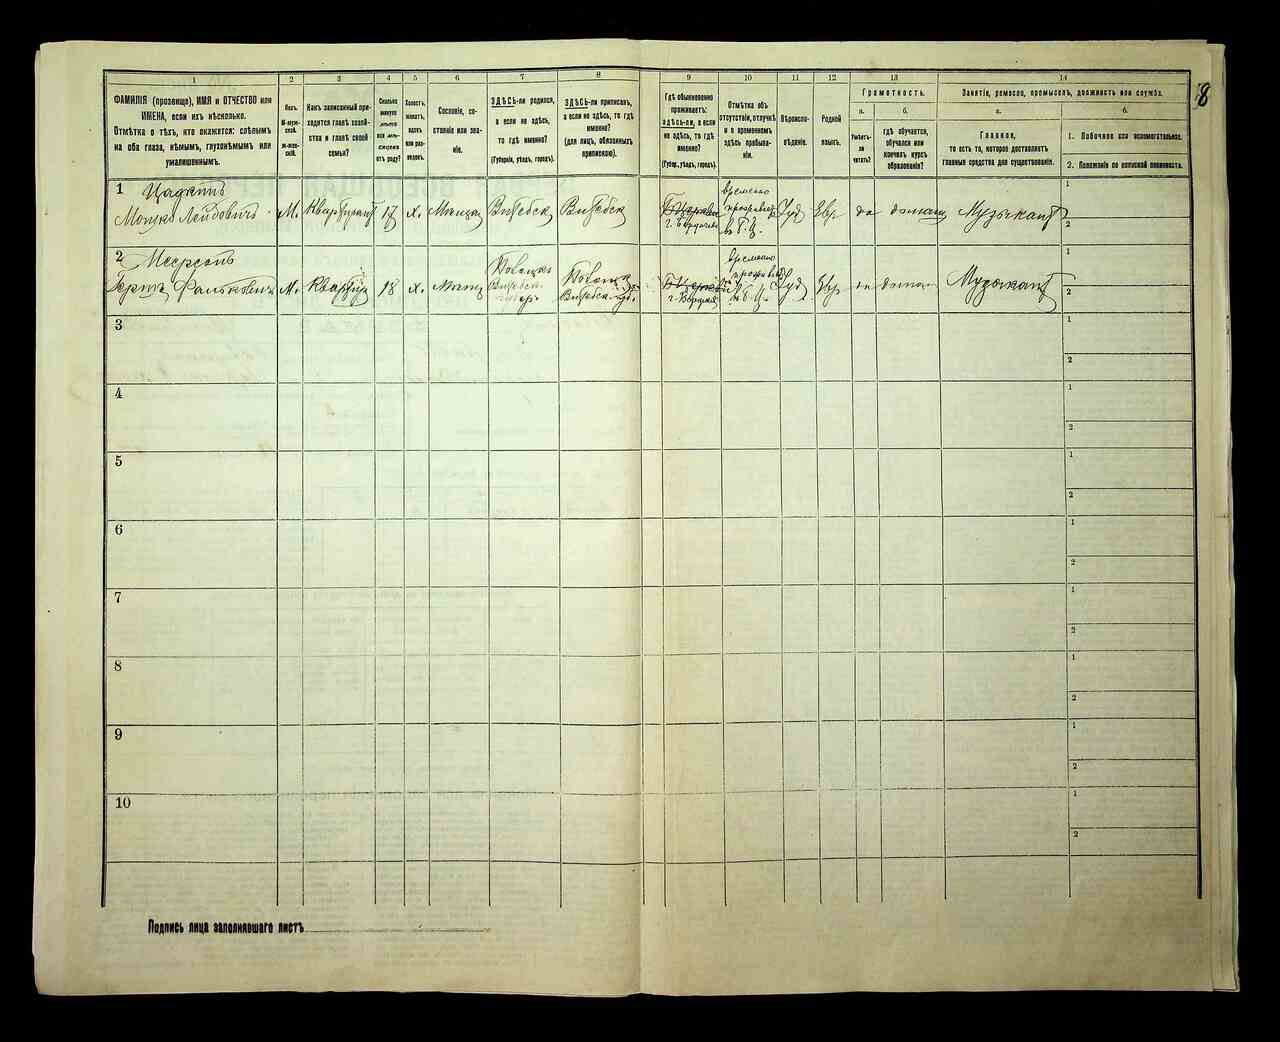 8
1
2
3
4
5
6
7
8
9
10
11
12
13
14
ФАМИЛІЯ (прозвище), ИМЯ и ОТЧЕСТВО или
ИМЕНА, если ихъ нѣсколько.
Отмѣтка о тѣхъ, кто окажется: слѣпымъ
на оба глаза, нѣмымъ, глухонѣмымъ или
умалишеннымъ.
Полъ.
М-муж-
ской.
Ж-жен-
скій.
Какъ записанный при-
ходится главѣ хозяй-
ства и главѣ своей
семьи?
Сколько
минуло
лѣтъ
или мѣ-
сяцевъ
отъ роду?
Холостъ,
женатъ,
вдовъ
или раз-
веденъ.
Сословіе, со-
стояніе или зва-
ніе.
ЗДѢСЬ-ли родился,
а если не здѣсь,
то гдѣ именно?
(Губернія, уѣздъ, городъ).
ЗДѢСЬ-ли приписанъ,
а если не здѣсь, то гдѣ
именно?
(для лицъ, обязанныхъ
припискою).
Гдѣ обыкновенно
проживаетъ:
здѣсь-ли, а если
не здѣсь, то гдѣ
именно?
(Губер., уѣздъ, городъ).
Отмѣтка объ
отсутствіи, отлучкѣ
и о временномъ
здѣсь пребыва-
ніи.
Вѣроиспо-
вѣданіе.
Родной
языкъ.
Грамотность.
а.
Умѣетъ-
ли
читать?
б.
гдѣ обучается,
обучался или
кончилъ курсъ
образованія?
Занятіе, ремесло, промыселъ, должность или служба.
а.
Главное,
то есть то, которое доставляетъ
главныя средства для существованія.
б.
1. Побочное или вспомогательное.
2. Положеніе по воинской повинности.
1 Цадкинъ
Мошко Лейбовичъ М. Квартирант 17 х. Мѣщан Витебск Витебск Б Церкви г. Бердичев временно проживает въ Б.Ц. Іуд Евр да дома Музыкант
1
2
2 Меерсонъ
Герцъ Фальковичъ М. Квартир 18 х. Мѣщ Витебск. губер. Витебск. губ. Б Церкви г. Бердичев временно проживает въ Б.Ц. Іуд Евр да дома Музыкант
1
2
3
1
2
4
1
2
5
1
2
6
1
2
7
1
2
8
1
2
9
1
2
10
1
2
Подпись лица заполнявшаго листъ